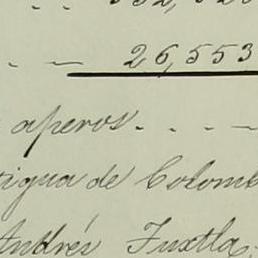 26,553
aperos. . . . —
tigua de Colomb
Andrés Tuxtla.